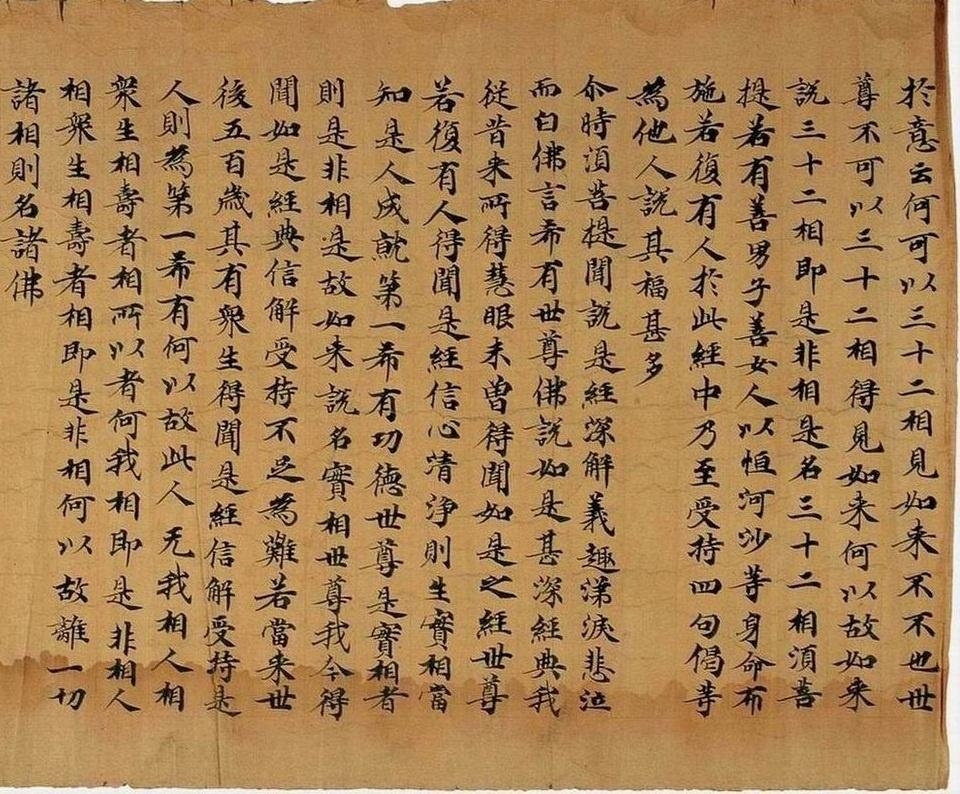 於意云何可以三十二相見如来不不也世
尊不可以三十二相得見如来何以故如来
說三十二相即是非相是名三十二相湏菩
提若有善男子善女人以恒河沙等身命布
施若復有人於此經中乃至受持四句偈等
為他人說其福甚多
尒時湏菩提聞說是經深解義趣涕淚悲泣
而白佛言希有世尊佛說如是甚深經典我
従昔来所得慧眼未曽得聞如是之經世尊
若復有人得聞是經信心清浄則生實相當
知是人成就第一希有功德世尊是實相者
則是非相是故如来說名實相世尊我今得
聞如是經典信解受持不足為難若當来世
後五百歳其有衆生得聞是經信解受持是
人則為第一希有何以故此人无我相人相
衆生相壽者相所以者何我相即是非相人
相衆生相壽者相即是非相何以故離一切
諸相則名諸佛